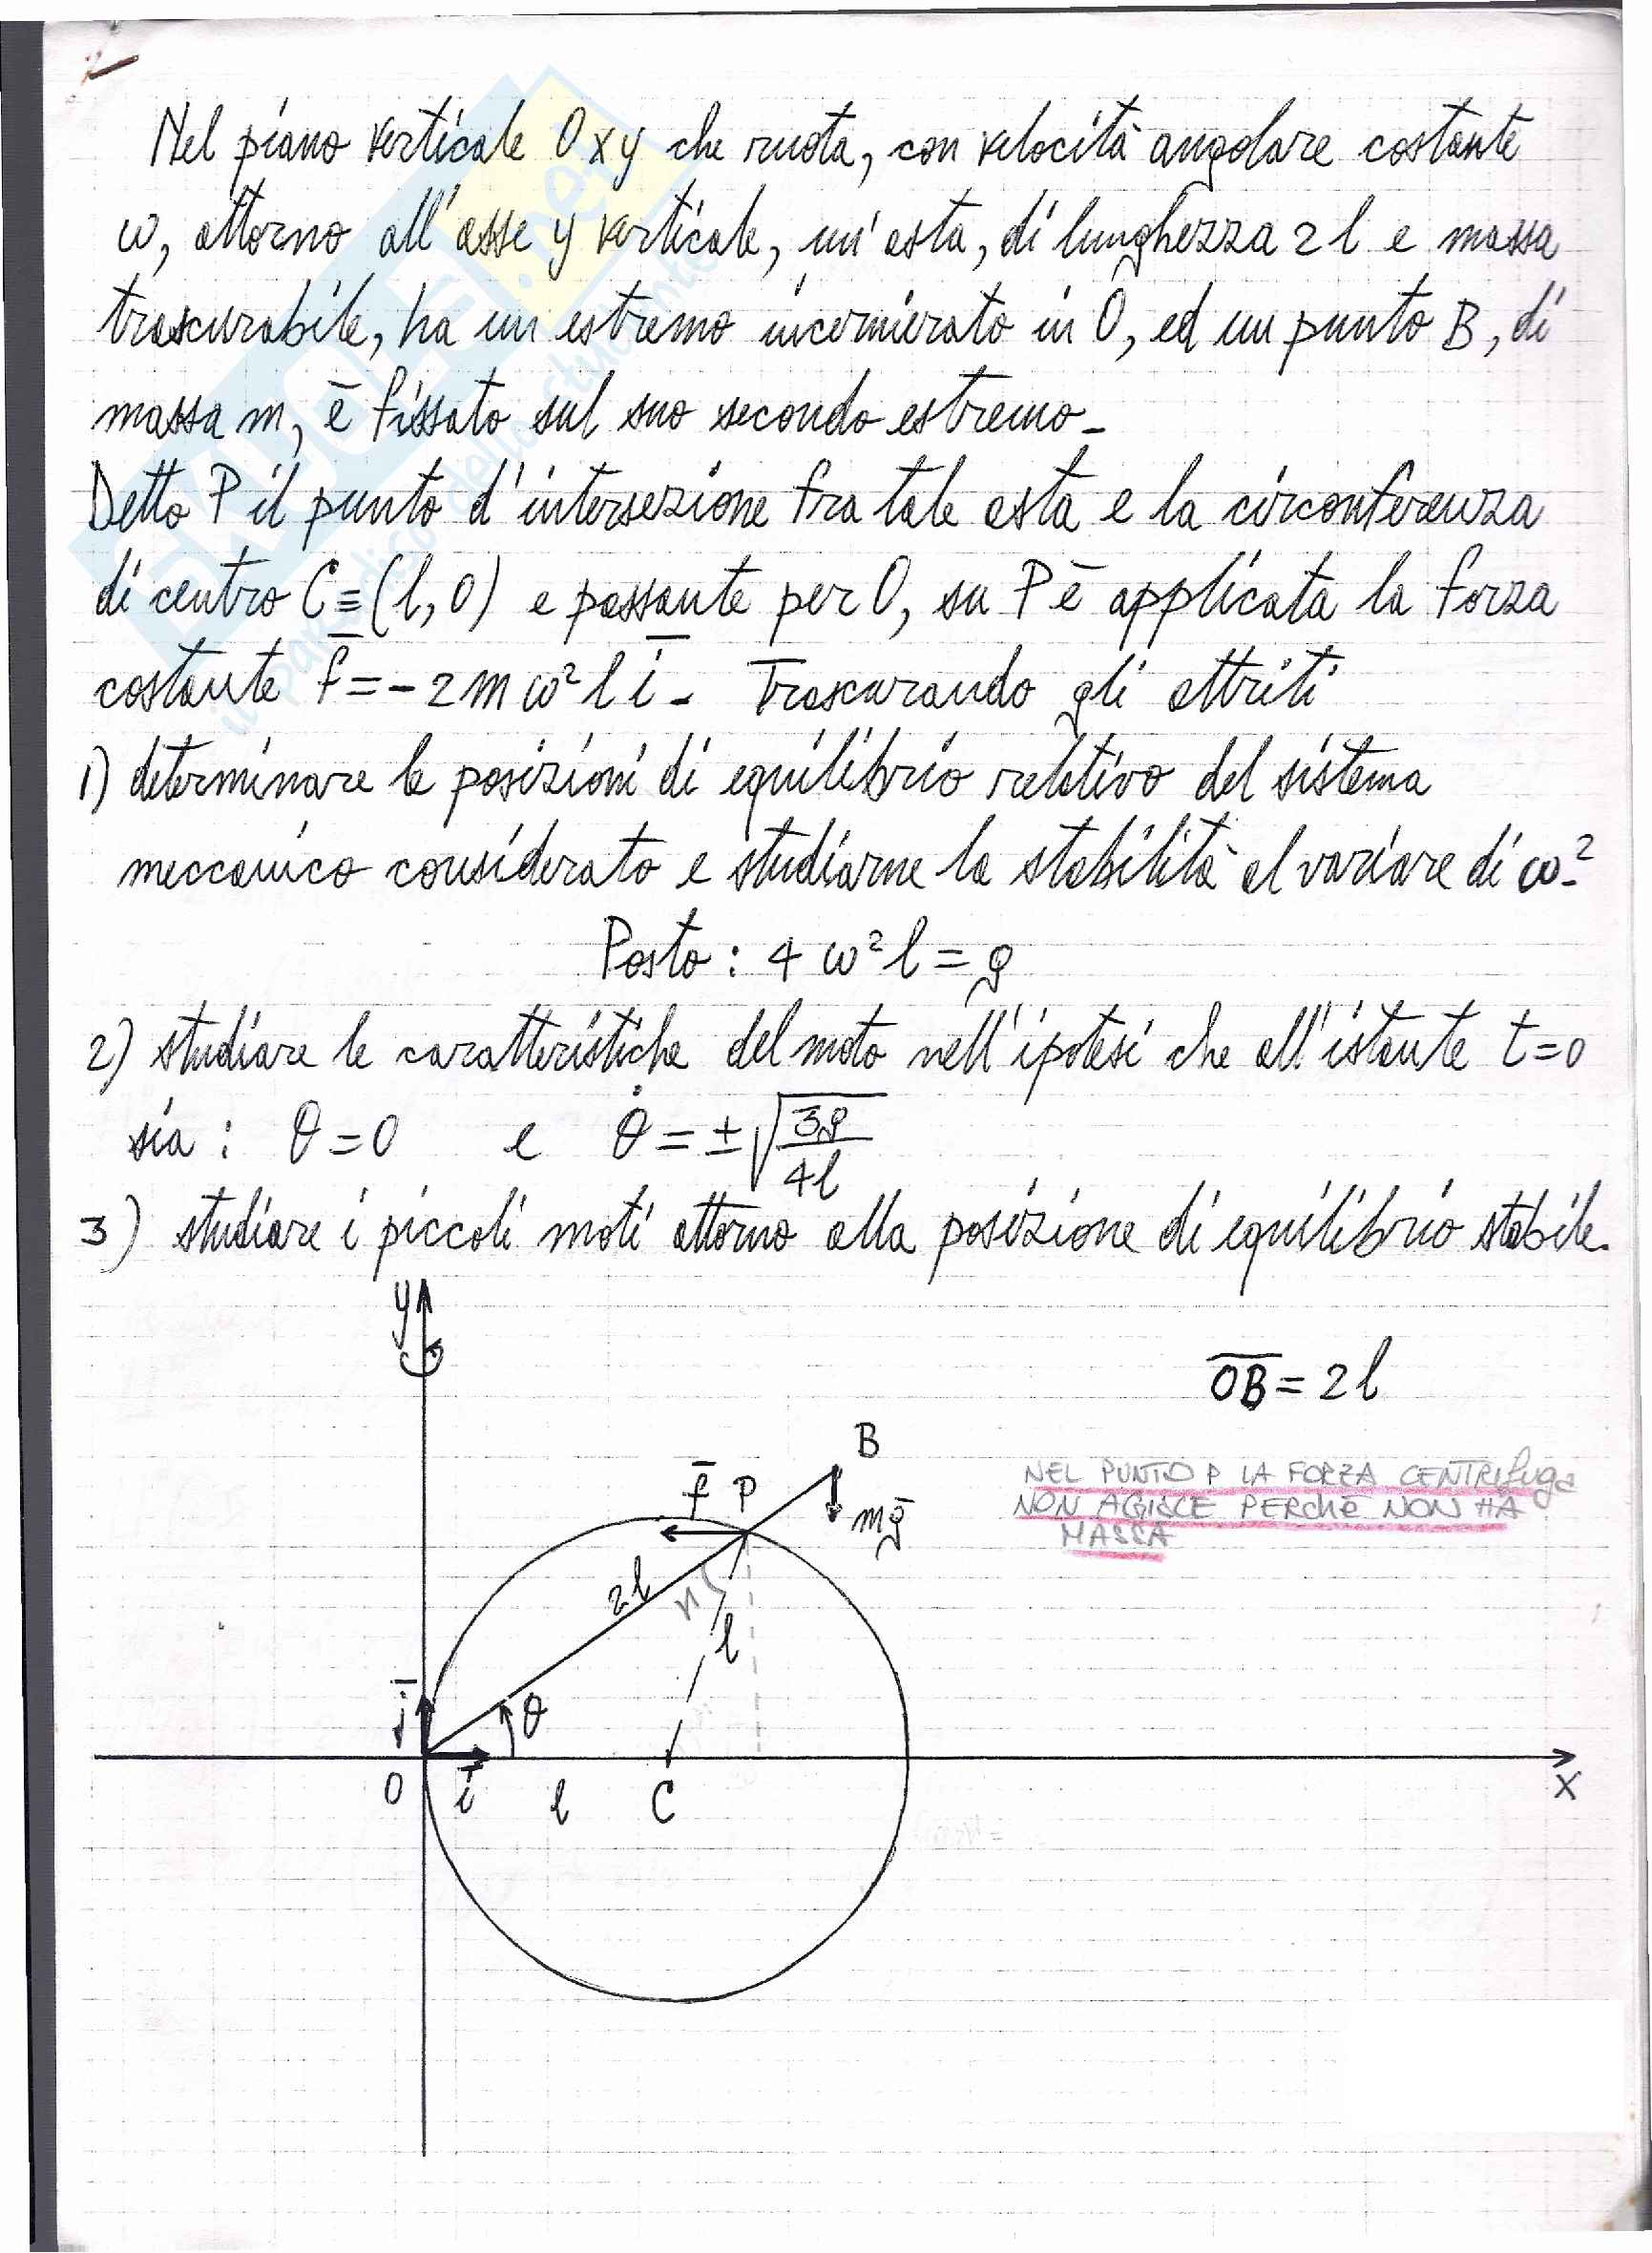 Nel piano verticale Oxy che ruota, con velocità angolare costante
ω, attorno all'asse y verticale, un'asta, di lunghezza 2l e massa
trascurabile, ha un estremo incernierato in O, ed un punto B, di
massa m, è fissato sul suo secondo estremo_
Detto P il punto d'intersezione fra tale asta e la circonferenza
di centro C≡(l,0) e passante per O, su P è applicata la forza
costante f̄=-2mω²l ī_ Trascurando gli attriti
1) determinare le posizioni di equilibrio relativo del sistema
meccanico considerato e studiarne la stabilità al variare di ω²_
Posto: 4ω²l=g
2) studiare le caratteristiche del moto nell'ipotesi che all'istante t=0
sia: θ=0 e θ̇=±√(3g/4l)
3) studiare i piccoli moti attorno alla posizione di equilibrio stabile.
y
O̅B̅=2l
B
f̄ P
NEL PUNTO P LA FORZA CENTRIFUGA
NON AGISCE PERCHÈ NON HA
MASSA
mḡ
2l
l
j̄
θ
O ī l C
x